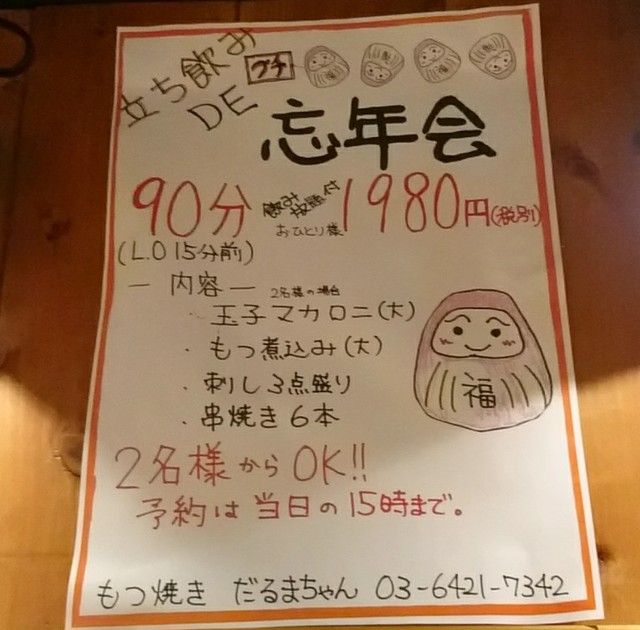 立ち飲み
DE
プチ
忘年会
90分 飲み放題付 おひとり様 1980円(税別)
(L.O 15分前)
― 内容 ― 2名様の場合
・玉子マカロニ(大)
・もつ煮込み(大)
・刺し3点盛り
・串焼き6本
福
2名様からOK!!
予約は当日の15時まで。
もつ焼き だるまちゃん 03-6421-7342